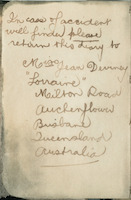 In case of accident
will finder please
return this diary to
Mrs Jean Devanny
"Lorraine"
Milton Road
Auchenflower
Brisbane
Queensland
Australia